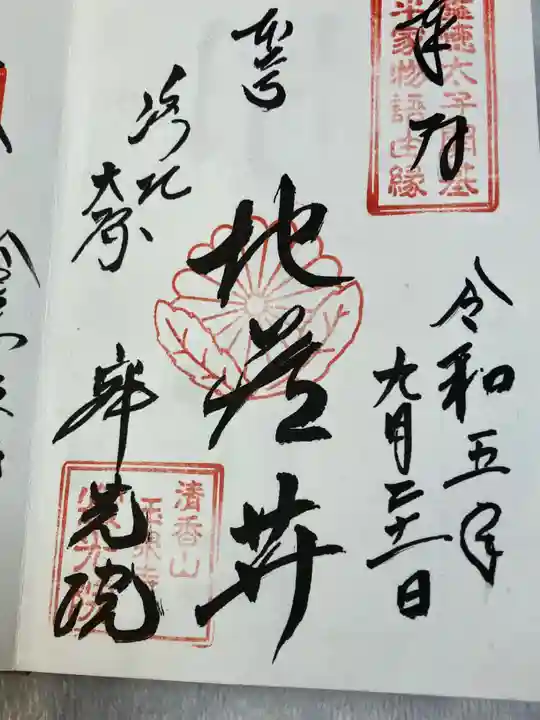 奉拝
聖徳太子開基
平家物語由縁
令和五年
九月二十一日
本尊
地蔵𦬇
洛北
大原
寂光院
清香山
玉泉寺
寂光院